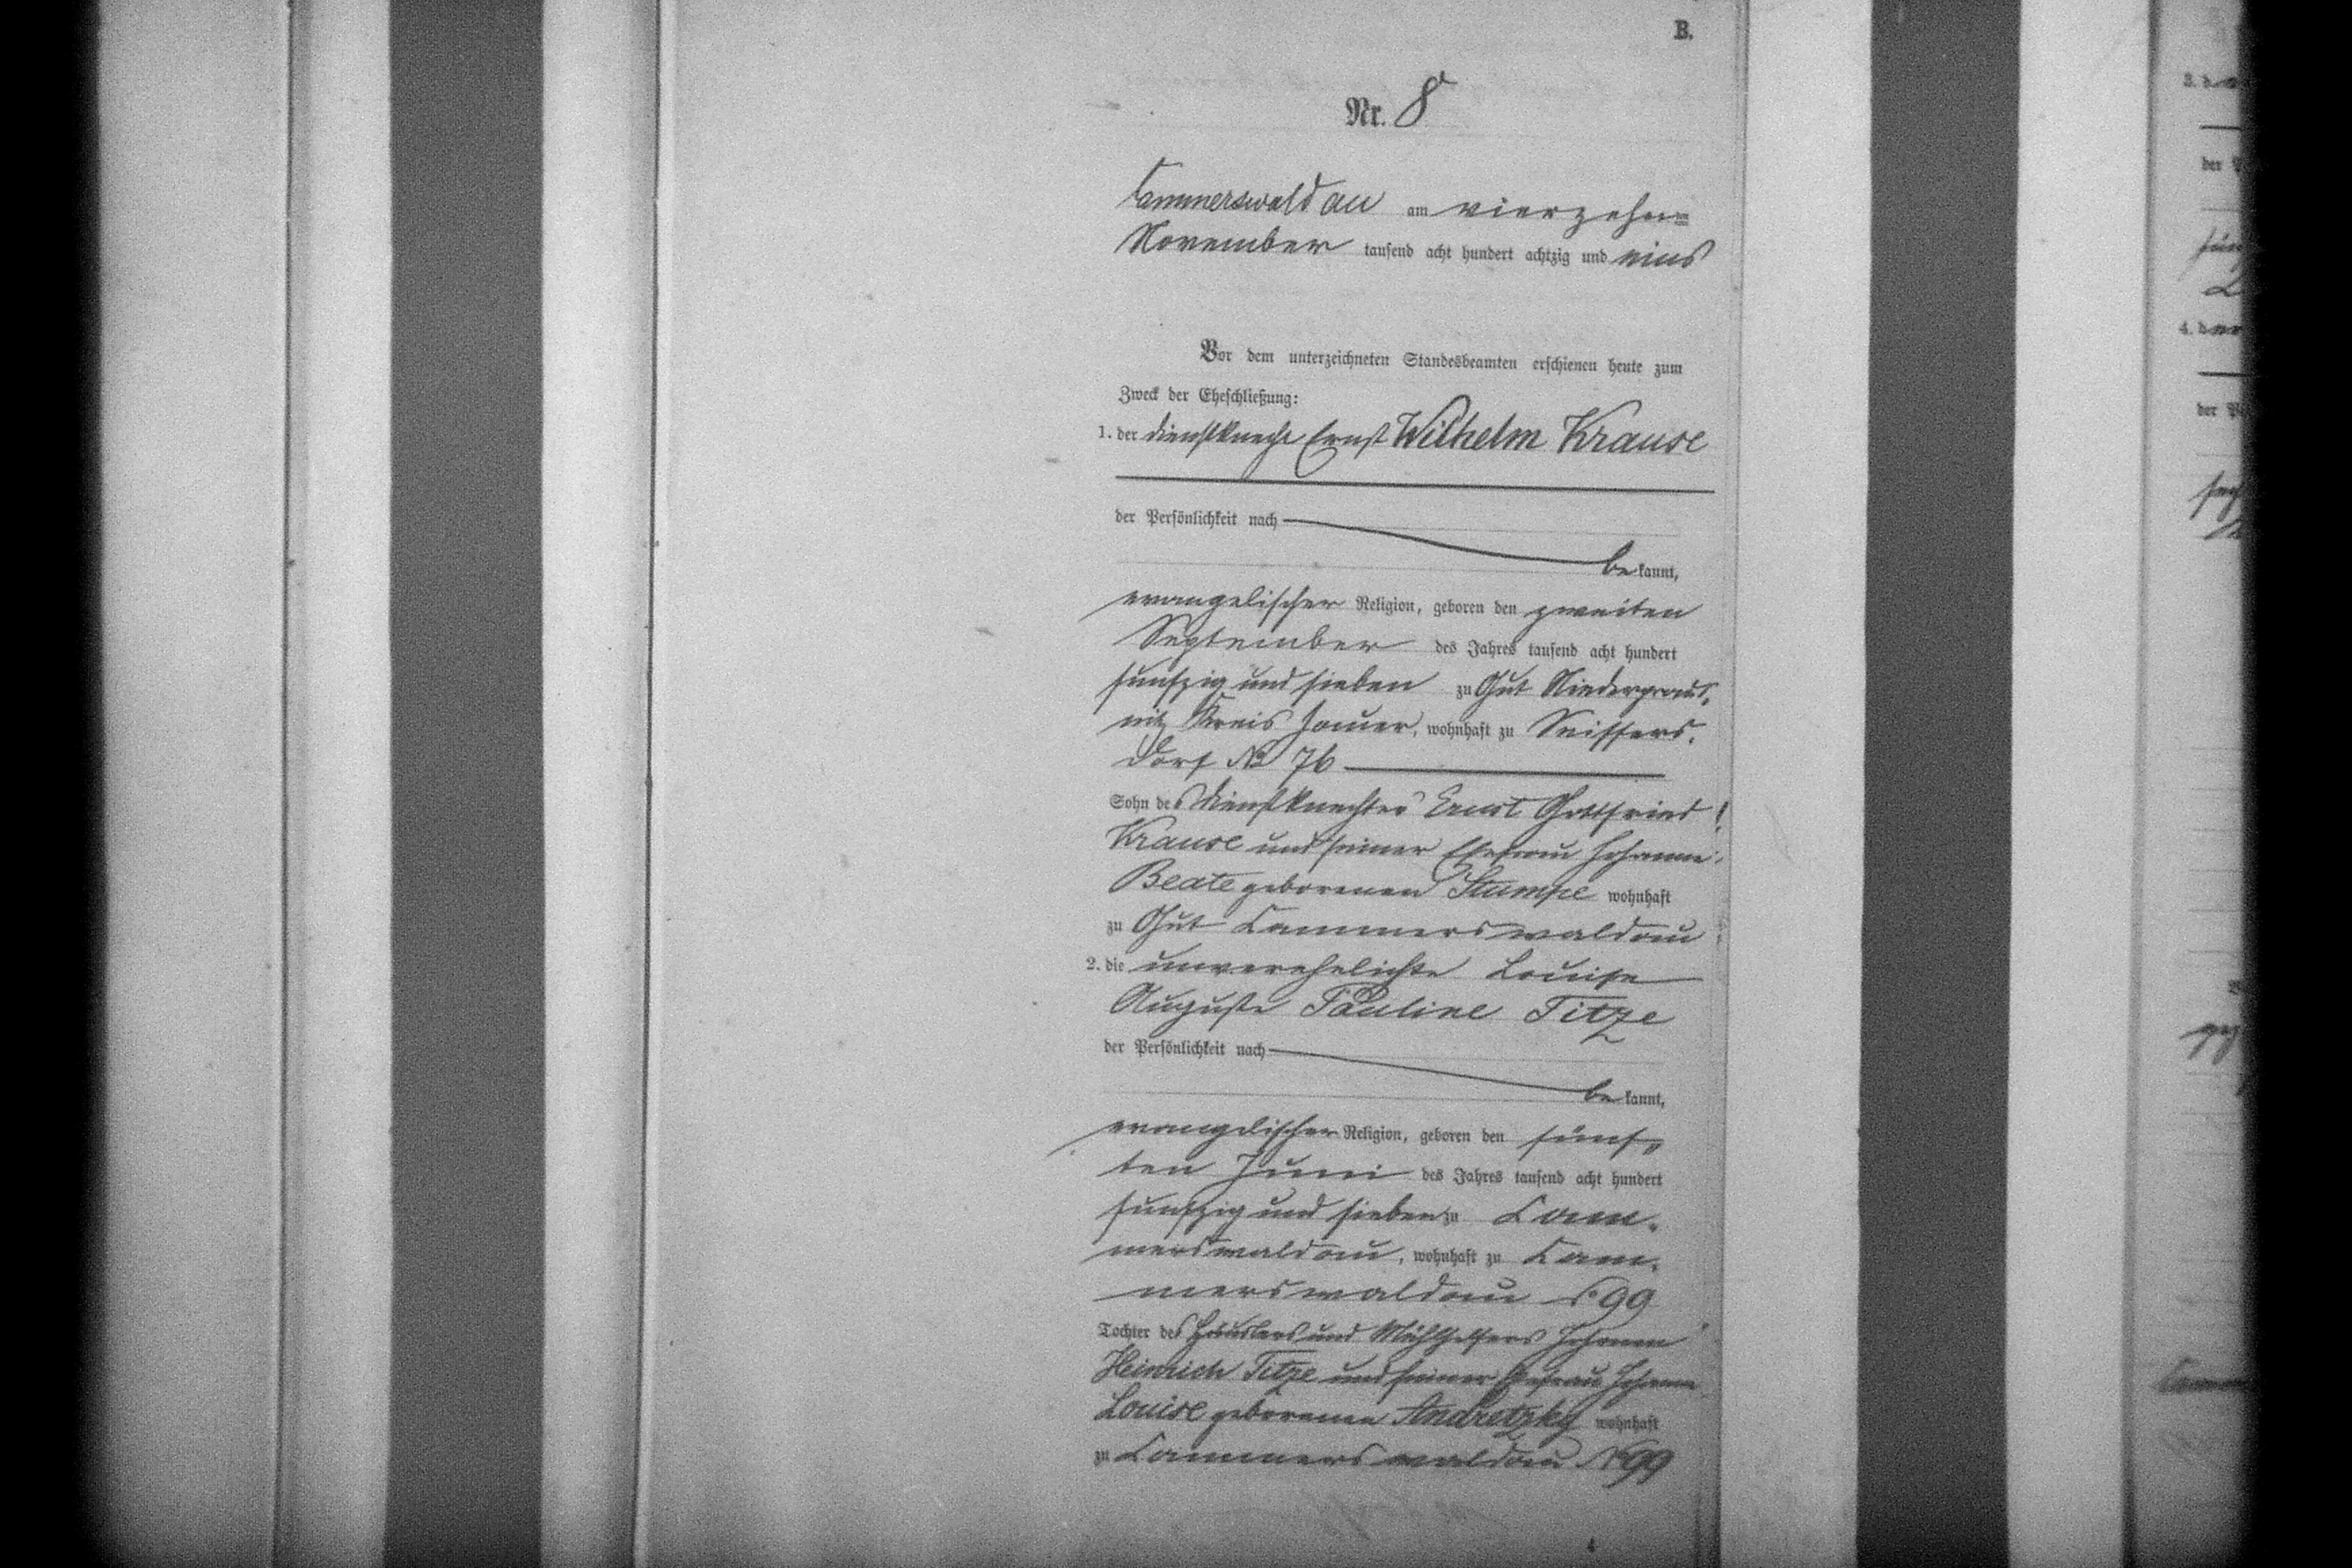 B.
Nr. 8
Cammerswaldau am vierzehnten
November tausend acht hundert achtzig und eins
Vor dem unterzeichneten Standesbeamten erschienen heute zum
Zweck der Eheschließung:
1. der Dienstknecht Ernst Wilhelm Krause
der Persönlichkeit nach
be kannt,
evangelischer Religion, geboren den zweiten
September des Jahres tausend acht hundert
fünfzig und sieben zu Gut
nitz Kreis Jauer, wohnhaft zu Seiffers-
dorf No 76
Sohn des Dienstknechtes Ernst Gottfried
Krause und seiner Ehefrau Johanne
Beate geborenen Stumpe wohnhaft
zu Gut Cammerswaldau
2. die unverehelichte Louise
Auguste Pauline Titze
der Persönlichkeit nach
be kannt,
evangelischer Religion, geboren den fünf-
ten Juni des Jahres tausend acht hundert
fünfzig und sieben zu Cam-
merswaldau, wohnhaft zu Cam-
merswaldau No 99
Tochter des Häuslers und Johann
Heinrich Titze und seiner Ehefrau Johanne
Louise geborenen Andretzky wohnhaft
zu Cammerswaldau No 99
4
3. d
der P
4. d
der P